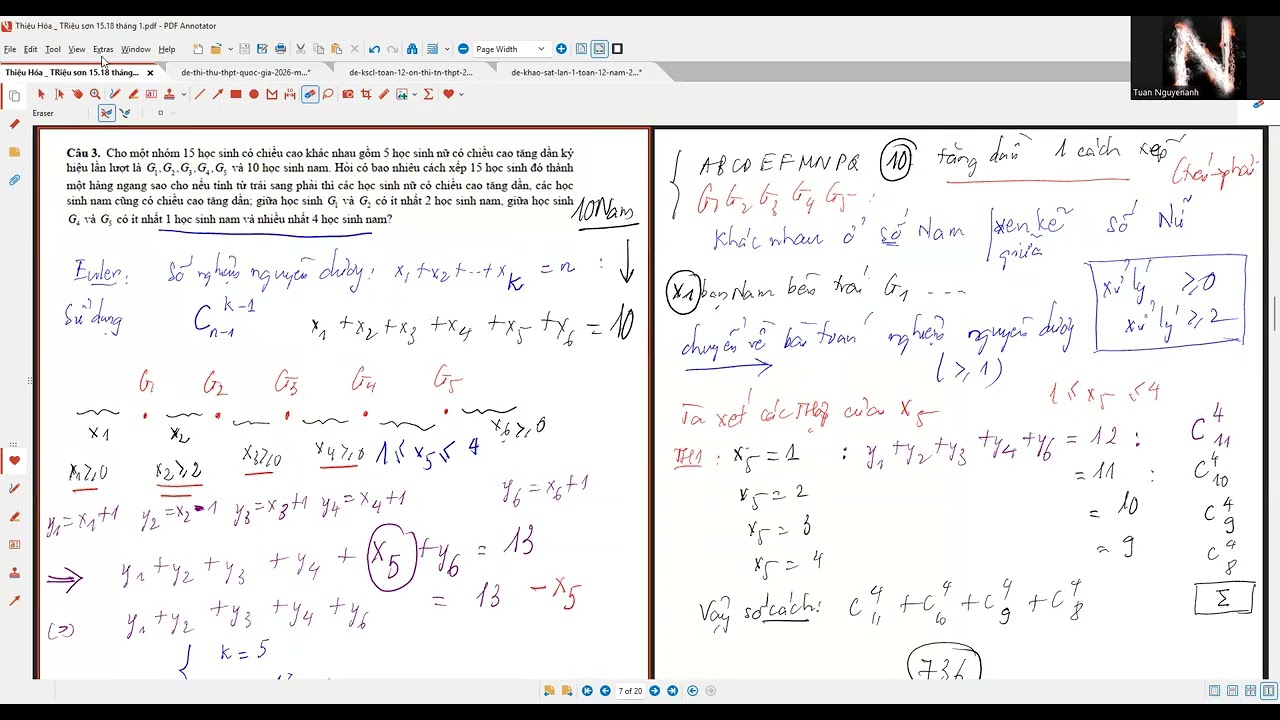 Thiệu Hóa _ TRiệu sơn 15.18 tháng 1.pdf - PDF Annotator
File Edit Tool View Extras Window Help
Page Width
Thiệu Hóa _ TRiệu sơn 15.18 tháng...
de-thi-thu-thpt-quoc-gia-2026-m...*
de-kscl-toan-12-on-thi-tn-thpt-2...
de-khao-sat-lan-1-toan-12-nam-2...*
Tuan Nguyenanh
Eraser
Câu 3. Cho một nhóm 15 học sinh có chiều cao khác nhau gồm 5 học sinh nữ có chiều cao tăng dần ký
hiệu lần lượt là G₁, G₂, G₃, G₄, G₅ và 10 học sinh nam. Hỏi có bao nhiêu cách xếp 15 học sinh đó thành
một hàng ngang sao cho nếu tính từ trái sang phải thì các học sinh nữ có chiều cao tăng dần, các học
sinh nam cũng có chiều cao tăng dần; giữa học sinh G₁ và G₂ có ít nhất 2 học sinh nam, giữa học sinh
G₄ và G₅ có ít nhất 1 học sinh nam và nhiều nhất 4 học sinh nam?
10 Nam
Euler: Số nghiệm nguyên dương: x₁ + x₂ + ... + xₖ = n :
Sử dụng C_{n-1}^{k-1}
x₁ + x₂ + x₃ + x₄ + x₅ + x₆ = 10
G₁ G₂ G₃ G₄ G₅
x₁ x₂ x₆ ≥ 0
x₁ ≥ 0 x₂ ≥ 2 x₃ ≥ 0 x₄ ≥ 0 1 ≤ x₅ ≤ 4
y₁ = x₁ + 1 y₂ = x₂ - 1 y₃ = x₃ + 1 y₄ = x₄ + 1 y₆ = x₆ + 1
⇒ y₁ + y₂ + y₃ + y₄ + x₅ + y₆ = 13
(=) y₁ + y₂ + y₃ + y₄ + y₆ = 13 - x₅
k = 5
A B C D E F M N P Q 10 tăng dần 1 cách xếp
G₁ G₂ G₃ G₄ G₅ : (trái → phải)
Khác nhau ở số Nam xen kẽ giữa số Nữ
x₁ bạn Nam bên trái G₁ ...
xử lý ≥ 0
xử lý ≥ 2
chuyển về bài toán nghiệm nguyên dương
(≥ 1)
Ta xét các TH của x₅ 1 ≤ x₅ ≤ 4
TH1: x₅ = 1 : y₁ + y₂ + y₃ + y₄ + y₆ = 12 : C_{11}^{4}
x₅ = 2 = 11 : C_{10}^{4}
x₅ = 3 = 10 C_{9}^{4}
x₅ = 4 = 9 C_{8}^{4}
Σ
Vậy số cách: C_{11}^{4} + C_{10}^{4} + C_{9}^{4} + C_{8}^{4}
736
7 of 20